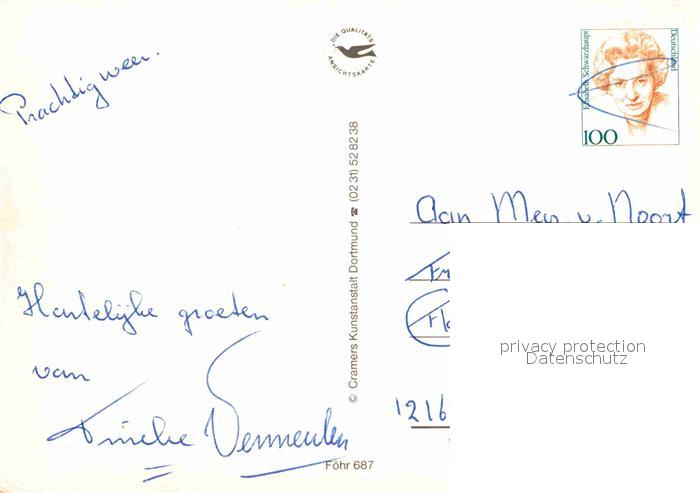 Prachtig weer.
Hartelijke groeten
van
Vermeulen
DIE QUALITÄTS
ANSICHTSKARTE
© Cramers Kunstanstalt Dortmund ☎ (02 31) 52 82 38
Föhr 687
Elisabeth Schwarzhaupt
Deutschland
100
Aan Mevr v. Noort
1216
privacy protection
Datenschutz